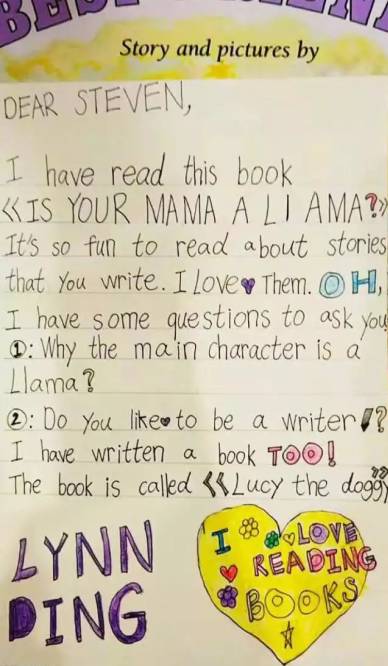 Story and pictures by
DEAR STEVEN,
I have read this book
《IS YOUR MAMA A LlAMA?》
It's so fun to read about stories
that you write. I Love Them. OH,
I have some questions to ask you
①: Why the main character is a
Llama?
②: Do you like to be a writer?
I have written a book TOO!
The book is called 《Lucy the doggy》
LYNN
DING
I LOVE
READING
BOOKS